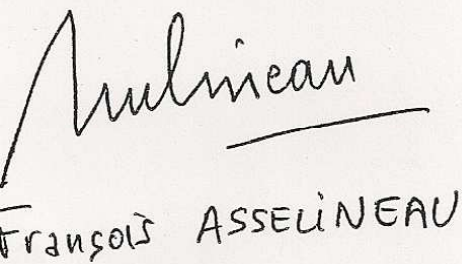 Asselineau
François ASSELiNEAU